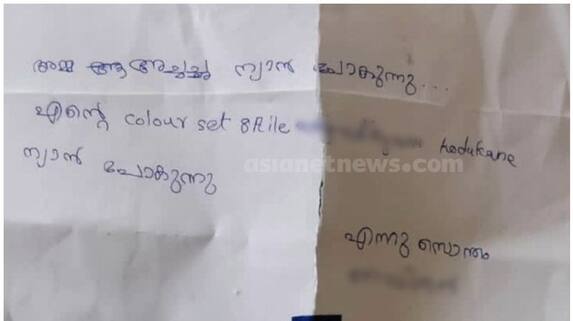 അമ്മ അച്ചച്ച ന്യാൻ പോകുന്നു...
എന്റെ colour set 8Rile kodukane
ന്യാൻ പോകുന്നു
asianetnews.com
എന്നു സൊന്തം